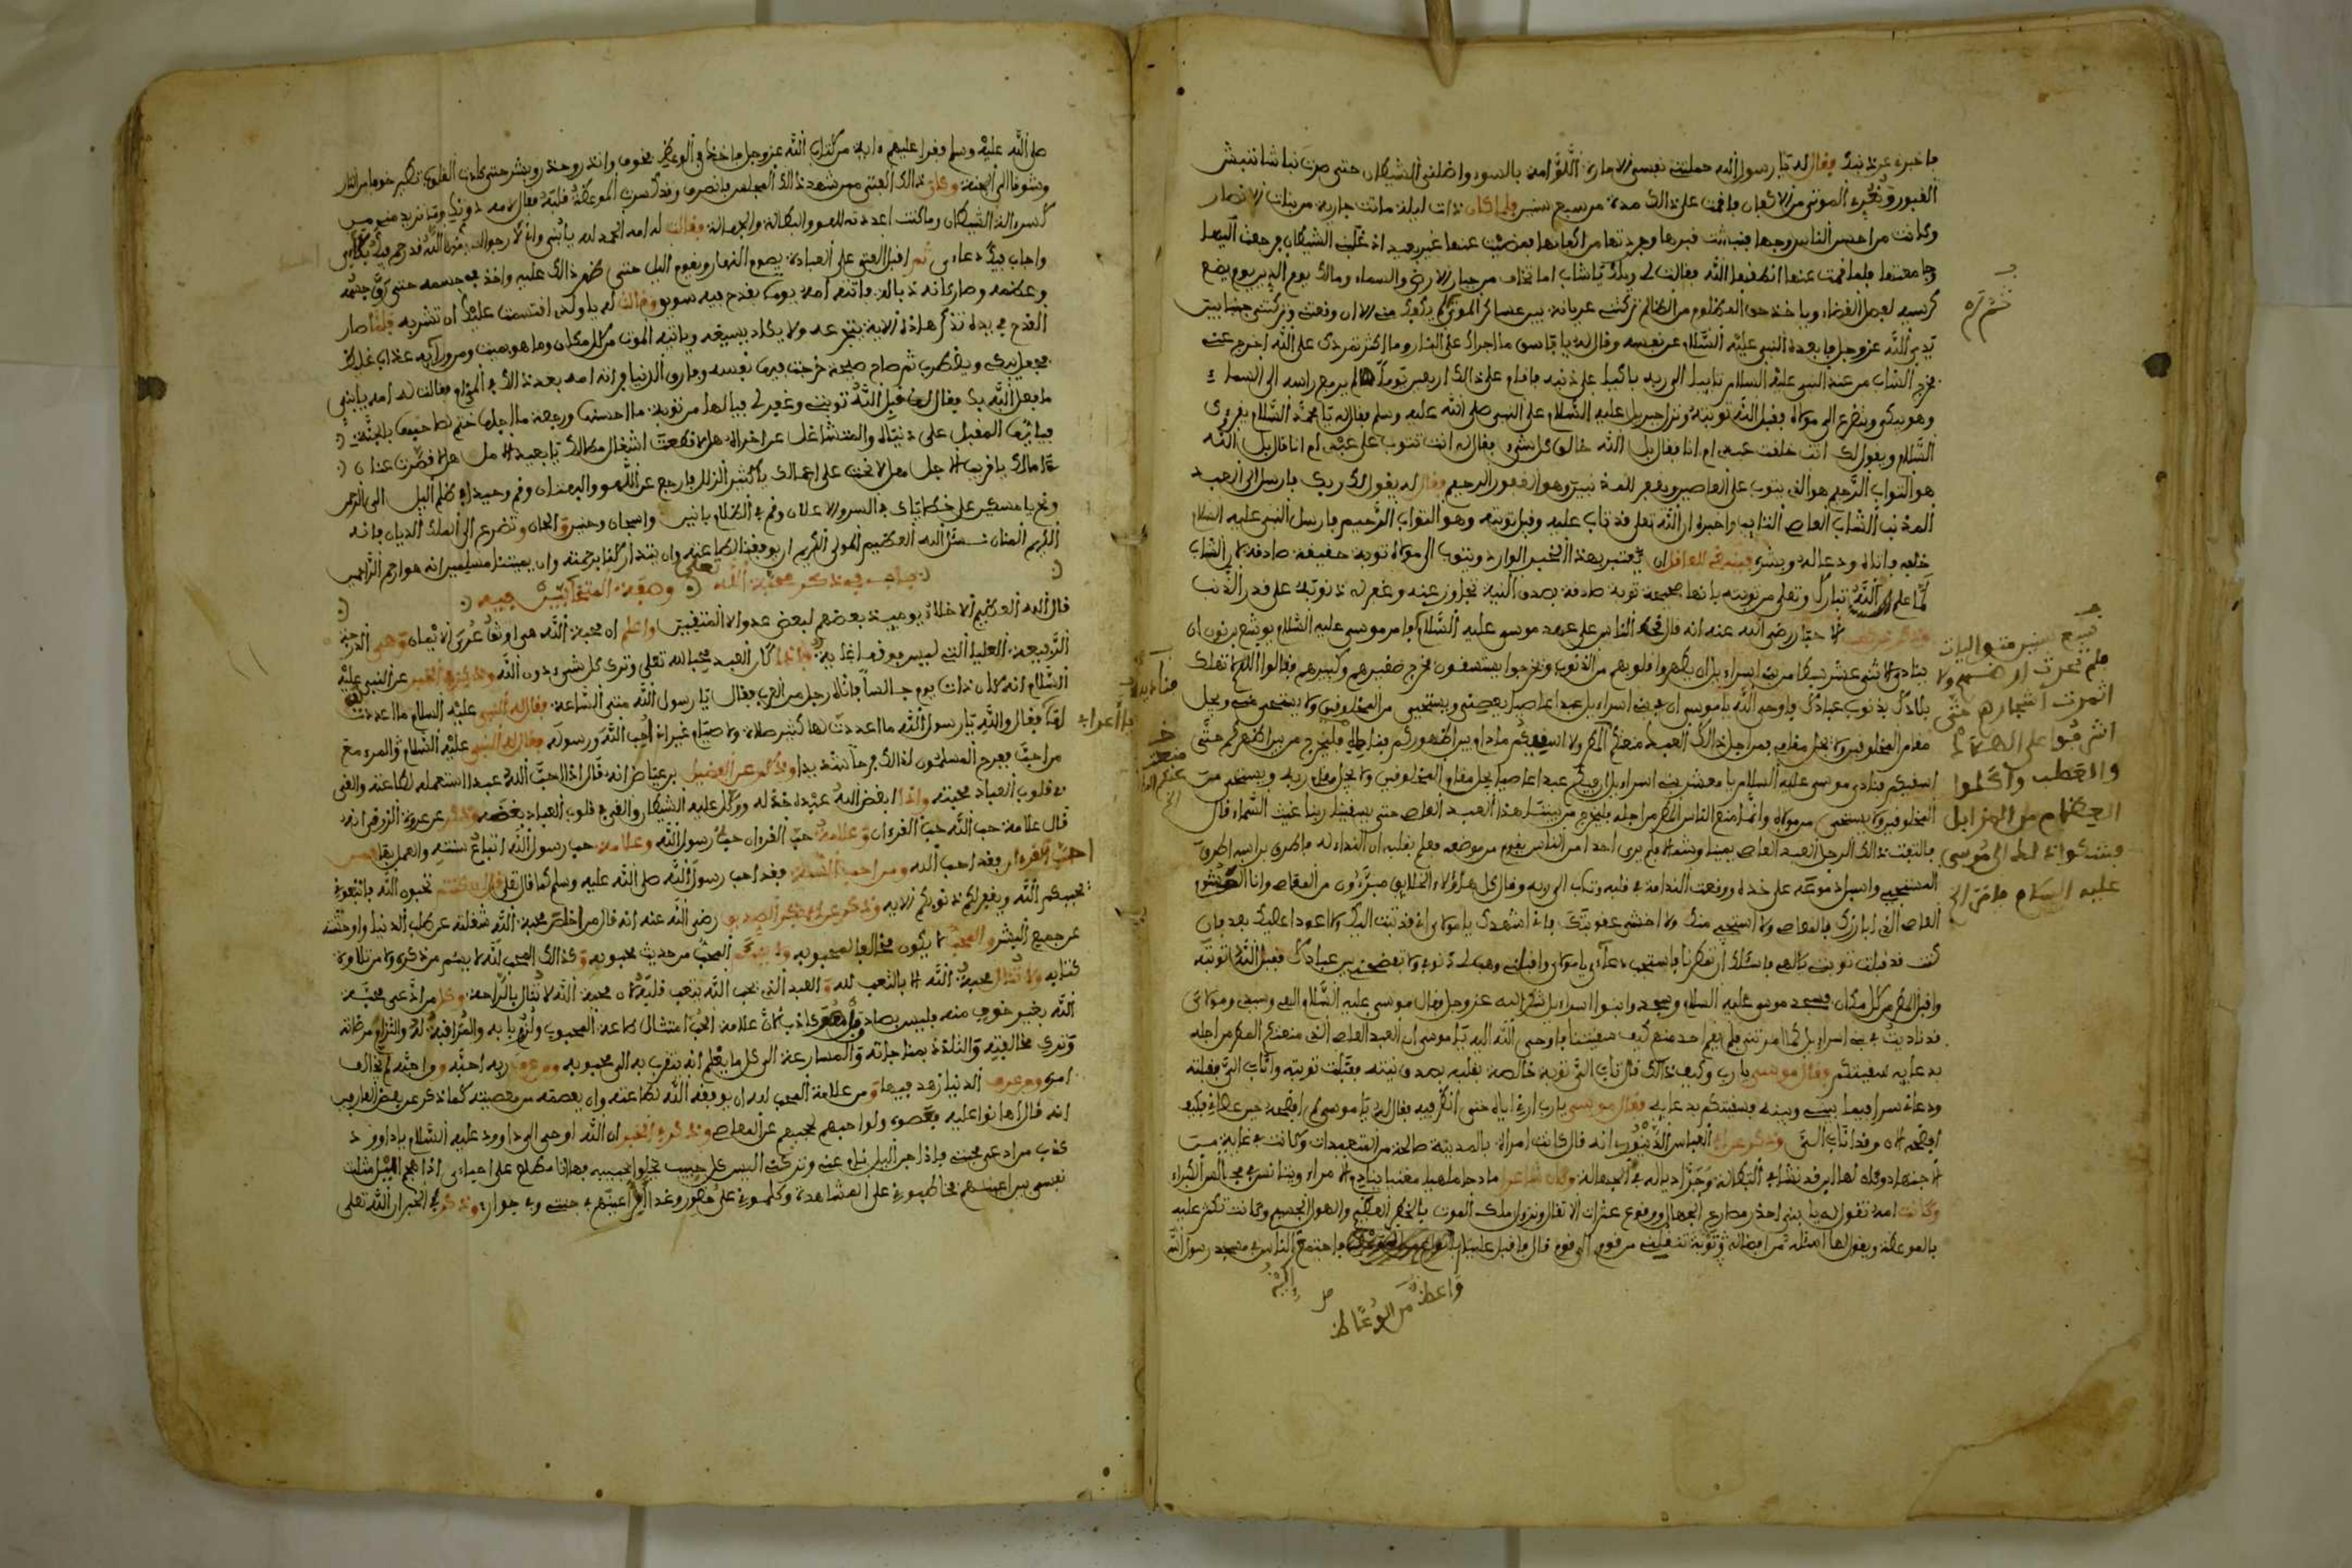 فاخبره عن ذنبك فقال له يا رسول الله حملتني نفسي الامارة بالسوء واضلني الشيطان حتى صرت نباشا ننبش
القبور ونعري الموتى من الاكفان فاقمت على ذلك مدة من سبع سنين فلما كان ذات ليلة ماتت جارية من بنات الانصار
وكانت من احسن الناس وجها فنبشت قبرها وجردتها من اكفانها فمضيت عنها غير بعيد اذ غلبني الشيطان فرجعت اليها
وجامعتها فلما قمت عنها انطقها الله فقالت لي ويلك يا شاب اما تخاف من جبار الارض والسماء ومالك يوم الدين يوم يضع
كرسيه لفصل القضاء وياخذ حق المظلوم من الظالم تركتني عريانة بين عساكر الموتى
الله عز وجل فابعده النبي عليه السلام عن نفسه وقال له يا فاسق ما اجراك على النار وما اكثر تمردك على الله اخرج عني
فخرج الشاب من عند النبي عليه السلام تايبا الى ربه باكيا على ذنبه فاقام على ذلك اربعين يوما لم يرفع راسه الى السماء
وهو يبكي ويتضرع الى مولاه فقبل الله توبته ونزل جبريل عليه السلام على النبي صلى الله عليه وسلم فقال له يا محمد السلام يقرئ
السلام ويقول لك انت خلقت عبدي ام انا فقال بل الله خالق كل شيء فقال له انت تتوب على عبدي ام انا قال بل الله
هو التواب الرحيم هو الذي يتوب على العاصين ويغفر للمذنبين وهو الغفور الرحيم فقال له يقول لك ربك فارسل الى العبد
المذنب الشاب العاصي التايب واخبره ان الله تعلى قد تاب عليه وقبل توبته وهو التواب الرحيم فارسل النبي عليه السلام
خلفه فاتاه ودعا له وبشره فينبغي للعاقل ان يعتبر بهذا الخبر الوارد ويتوب الى مولاه توبة حقيقة صادقة لان الشاب
لما علم الله تبارك وتعلى من توبته بانها صحيحة توبة صادقة بصدق النية تجاوز عنه وغفر له ذنوبه على قدر الذنب
رضي الله عنه انه قال قحط الناس على عهد موسى عليه السلام فامر موسى عليه السلام يوشع بن نون ان
ينادي لاثني عشر سبطا من بني اسراءيل ان يطهروا قلوبهم من الذنوب ويخرجوا يستسقون فخرج صغيرهم وكبيرهم فقالوا اللهم لا تهلك
بلادك بذنوب عبادك فاوحى الله يا موسى ان في بني اسراءيل عبدا عاصيا يعصيني ويستحيي من المخلوقين ولا يستحيي مني ويجل
مقام المخلوقين ولا يجل مقامي فمن اجل ذلك العبد منعتكم المطر ولا اسقيكم ما دام بين اظهركم فناديه فليخرج من بين اظهركم حتى
اسقيكم فنادى موسى عليه السلام يا معشر بني اسراءيل ان فيكم عبدا عاصيا يجل مقام المخلوقين ولا يجل مقام ربه ويستحيي من
المخلوقين ولا يستحيي من مولاه وانما منع الناس المطر من اجله فليخرج من بيننا هذا العبد العاصي حتى يسقينا ربنا غيث السماء قال
فالتفت ذلك الرجل العبد العاصي يمينا وشمالا فلم يرى احدا من الناس يقوم من موضعه فعلم بقلبه ان النداء له فاطرق براسه اطراق
المستحيي واسبل دموعه على خده ووقعت الندامة في قلبه وتاب الى ربه وقال كل هاؤلاء الخلايق مبرءون من المعاصي وانا
العاصي الذي ابارزك بالمعاصي ولا استحيي منك ولا اخشى عقوبتك فاني اشهدك يا مولاي اني قد تبت اليك ولا اعود اعصيك بعد فان
كنت قد قبلت توبتي يا الهي فاسئلك ان تمطرنا فاستجب دعاءي يا مولاي واقبلني وهب لي ذنوبي ولا تفضحني بين عبادك فقبل الله توبته
واقبل المطر من كل مكان فسجد موسى عليه السلام وسجدوا بنوا اسراءيل شكرا لله عز وجل فقال موسى عليه السلام الهي وسيدي ومولاي
قد ناديت في بني اسراءيل كما امرتني فلم يقم احد منهم كيف سقيتنا فاوحى الله اليه يا موسى ان العبد العاصي الذي منعتكم المطر من اجله
بدعايه سقيتكم وقال موسى يا رب وكيف ذلك قال تاب الي توبة خالصة بقلبه بصدق نيته فقبلت توبته واناب الي فقبلته
ودعاني سرا فيما بيني وبينه وسقيتكم بدعايه فقال موسى يا رب ارني اياه حتى انظر فيه فقال له يا موسى لم افضحه حين عصاني فكيف
افضحه الان وقد اناب الي وذكر عن ابي العباس انه قال كانت امراة بالمدينة صالحة من المتعبدات وكانت في غاية من
الاجتهاد وكان لها ابن قد نشا في البطالة وجر اذياله في الجهالة وكان شاعرا مادحا ملهيا مغنيا
وكانت امه تقول له يا بني احذر مصارع الجهال ووقوع عثرات الانتقال ونزول ملك الموت بالخطر العظيم والهول الجسيم وكانت تكثر عليه
بالموعظة ويقول لها اسئله من افضاله توبة تنقلني من قوم الى قوم قال فاقبل علينا فاجتمع الناس في مسجد رسول الله
واعظ من الوعاظ
سبع سنين
فلم تعرق ارضهم ولا
اثمرت اشجارهم حتى
اشرفوا على الهلاك
والعطب واكلوا
العظام من المزابل
فشكوا ذلك الى موسى
عليه السلام فامر الخ
صلى الله عليه وسلم فقرا عليهم ءاية من كتاب الله عز وجل فاخذ في الوعظ فخوف وانذر وحذر وبشر حتى كادت القلوب تطير خوفا من النار
وشوقا الى الجنة وكان ذلك الفتى ممن شهد ذلك المجلس فانصرف وقد كسرت الموعظة قلبه فقال لامه
كسره الشيطان وما كنت اعددته للهو والبطالة والجهالة فقالت له امه الحمد لله يا بني واني لارجوا
واجاب فيك دعاءي ثم اقبل الفتى على العبادة يصوم النهار ويقوم الليل حتى ظهر ذلك عليه واخذ في جسمه حتى رق جسمه
وعظمه وصار كانه خيال فاتته امه يوما بقدح فيه سويق وقالت له يا ولدي اقسمت عليك ان تشربه فلما صار
القدح في يده تذكر هاذه الاية يتجرعه ولا يكاد يسيغه وياتيه الموت من كل مكان وما هو بميت ومن ورايه عذاب غليظ
فجعل يبكي ويضطرب ثم صاح صيحة خرجت فيها نفسه وفارق الدنيا فراته امه بعد ذلك في النوم فقالت له امه يا بني
ما فعل الله بك فقال لها قبل الله توبتي وغفر لي فيا لها من توبة ما احسنها ورجعة ما اجلها ختم لصاحبها بالجنة
فيا ايها المقبل على دنياه والمتشاغل عن اخراه
ونح يا مسكين على خطاياك في السر والاعلان وقم في الظلام بانين واشجان وحنين والحان وتضرع الى الملك الديان فانه
الكريم المنان نسئل الله العظيم المولى الكريم ان يوفقنا لطاعته وان يتداركنا برحمته وان يميتنا مسلمين انه هو ارحم الراحمين
باب فيه ذكر محبة الله تعلى وصفة المتحابين فيه
قال الله العظيم الاخلاء يوميذ بعضهم لبعض عدو الا المتقين واعلم ان محبة الله هي اوثق عرى الايمان وهي الدرجة
الرفيعة العليا التي ليس فوقها غاية وانما كان العبد محبا لله تعلى وترك كل شيء دون الله وذكر في الخبر عن النبي عليه
السلام انه كان ذات يوم جالسا فاتاه رجل من العرب فقال يا رسول الله متى الساعة فقال له النبي عليه السلام ما اعددت
لها فقال والله يا رسول الله ما اعددت لها كثير صلاة ولا صيام غير اني احب الله ورسوله فقال له النبي عليه السلام المرء مع
من احب ففرح المسلمون لذلك فرحا شديدا وذكر عن الفضيل بن عياض انه قال اذا احب الله عبدا استعمله لطاعته والقى
في قلوب العباد محبته واذا ابغض الله عبده خذله ووكل عليه الشيطان والقي في قلوب العباد بغضه وذكر عن عروة الزرقي انه
قال علامة حب الله حب القرءان وعلامة حب القرءان حب رسول الله وعلامة حب رسول الله اتباع سنته والعمل بها فمن
احب القرءان فقد احب الله ومن احب السنة فقد احب رسول الله صلى الله عليه وسلم كما قال تعلى قل ان كنتم تحبون الله فاتبعوني
يحببكم الله ويغفر لكم ذنوبكم الاية وذكر عن ابي بكر الصديق رضي الله عنه انه قال من اخلص محبة الله شغلته عن طلب الدنيا واوحشته
عن جميع البشر والمحب لا يكون مخالفا لمحبوبه ولا المحب من حديث محبوبه وكذلك المحب لله لا يسئم من ذكره ولا من تلاوة
كتابه ولا تنال محبة الله الا بالتعب لله والعبد الذي يحب الله يتعب قلبه لان محبة الله لا تنال بالراحة وكل من ادعى محبة
الله بغير خوف منه فليس بصادق لان علامة الحب امتثال طاعة المحبوب ولزوم بابه والمراقبة له والتزام مرضاته
وترك مخالفته والتلذذ بمناجاته والمسارعة الى كل ما يعلم انه يتقرب به الى محبوبه ومن عرف ربه احبه ومن احبه لم يخالف
امره ومن عرف الدنيا زهد فيها ومن علامة المحب لله ان يوفقه الله لطاعته وان يعصمه من معصيته كما ذكر عن بعض العارفين
انه قال اهانوا عليه فعصوه ولو احبهم لحجبهم عن المعاصي وذكر في الخبر ان الله اوحى الى داوود عليه السلام يا داوود
كذب من ادعى محبتي فاذا جن الليل نام عني وتركني اليس كل حبيب يخلوا بحبيبه فها انا مطلع على احباءي اذا جن الليل مثلت
نفسي بين اعينهم فخاطبوني على المشاهدة وكلموني على حضور وغدا اقر اعينهم في جنتي وفي جواري وذكر في الخبر ان الله تعلى